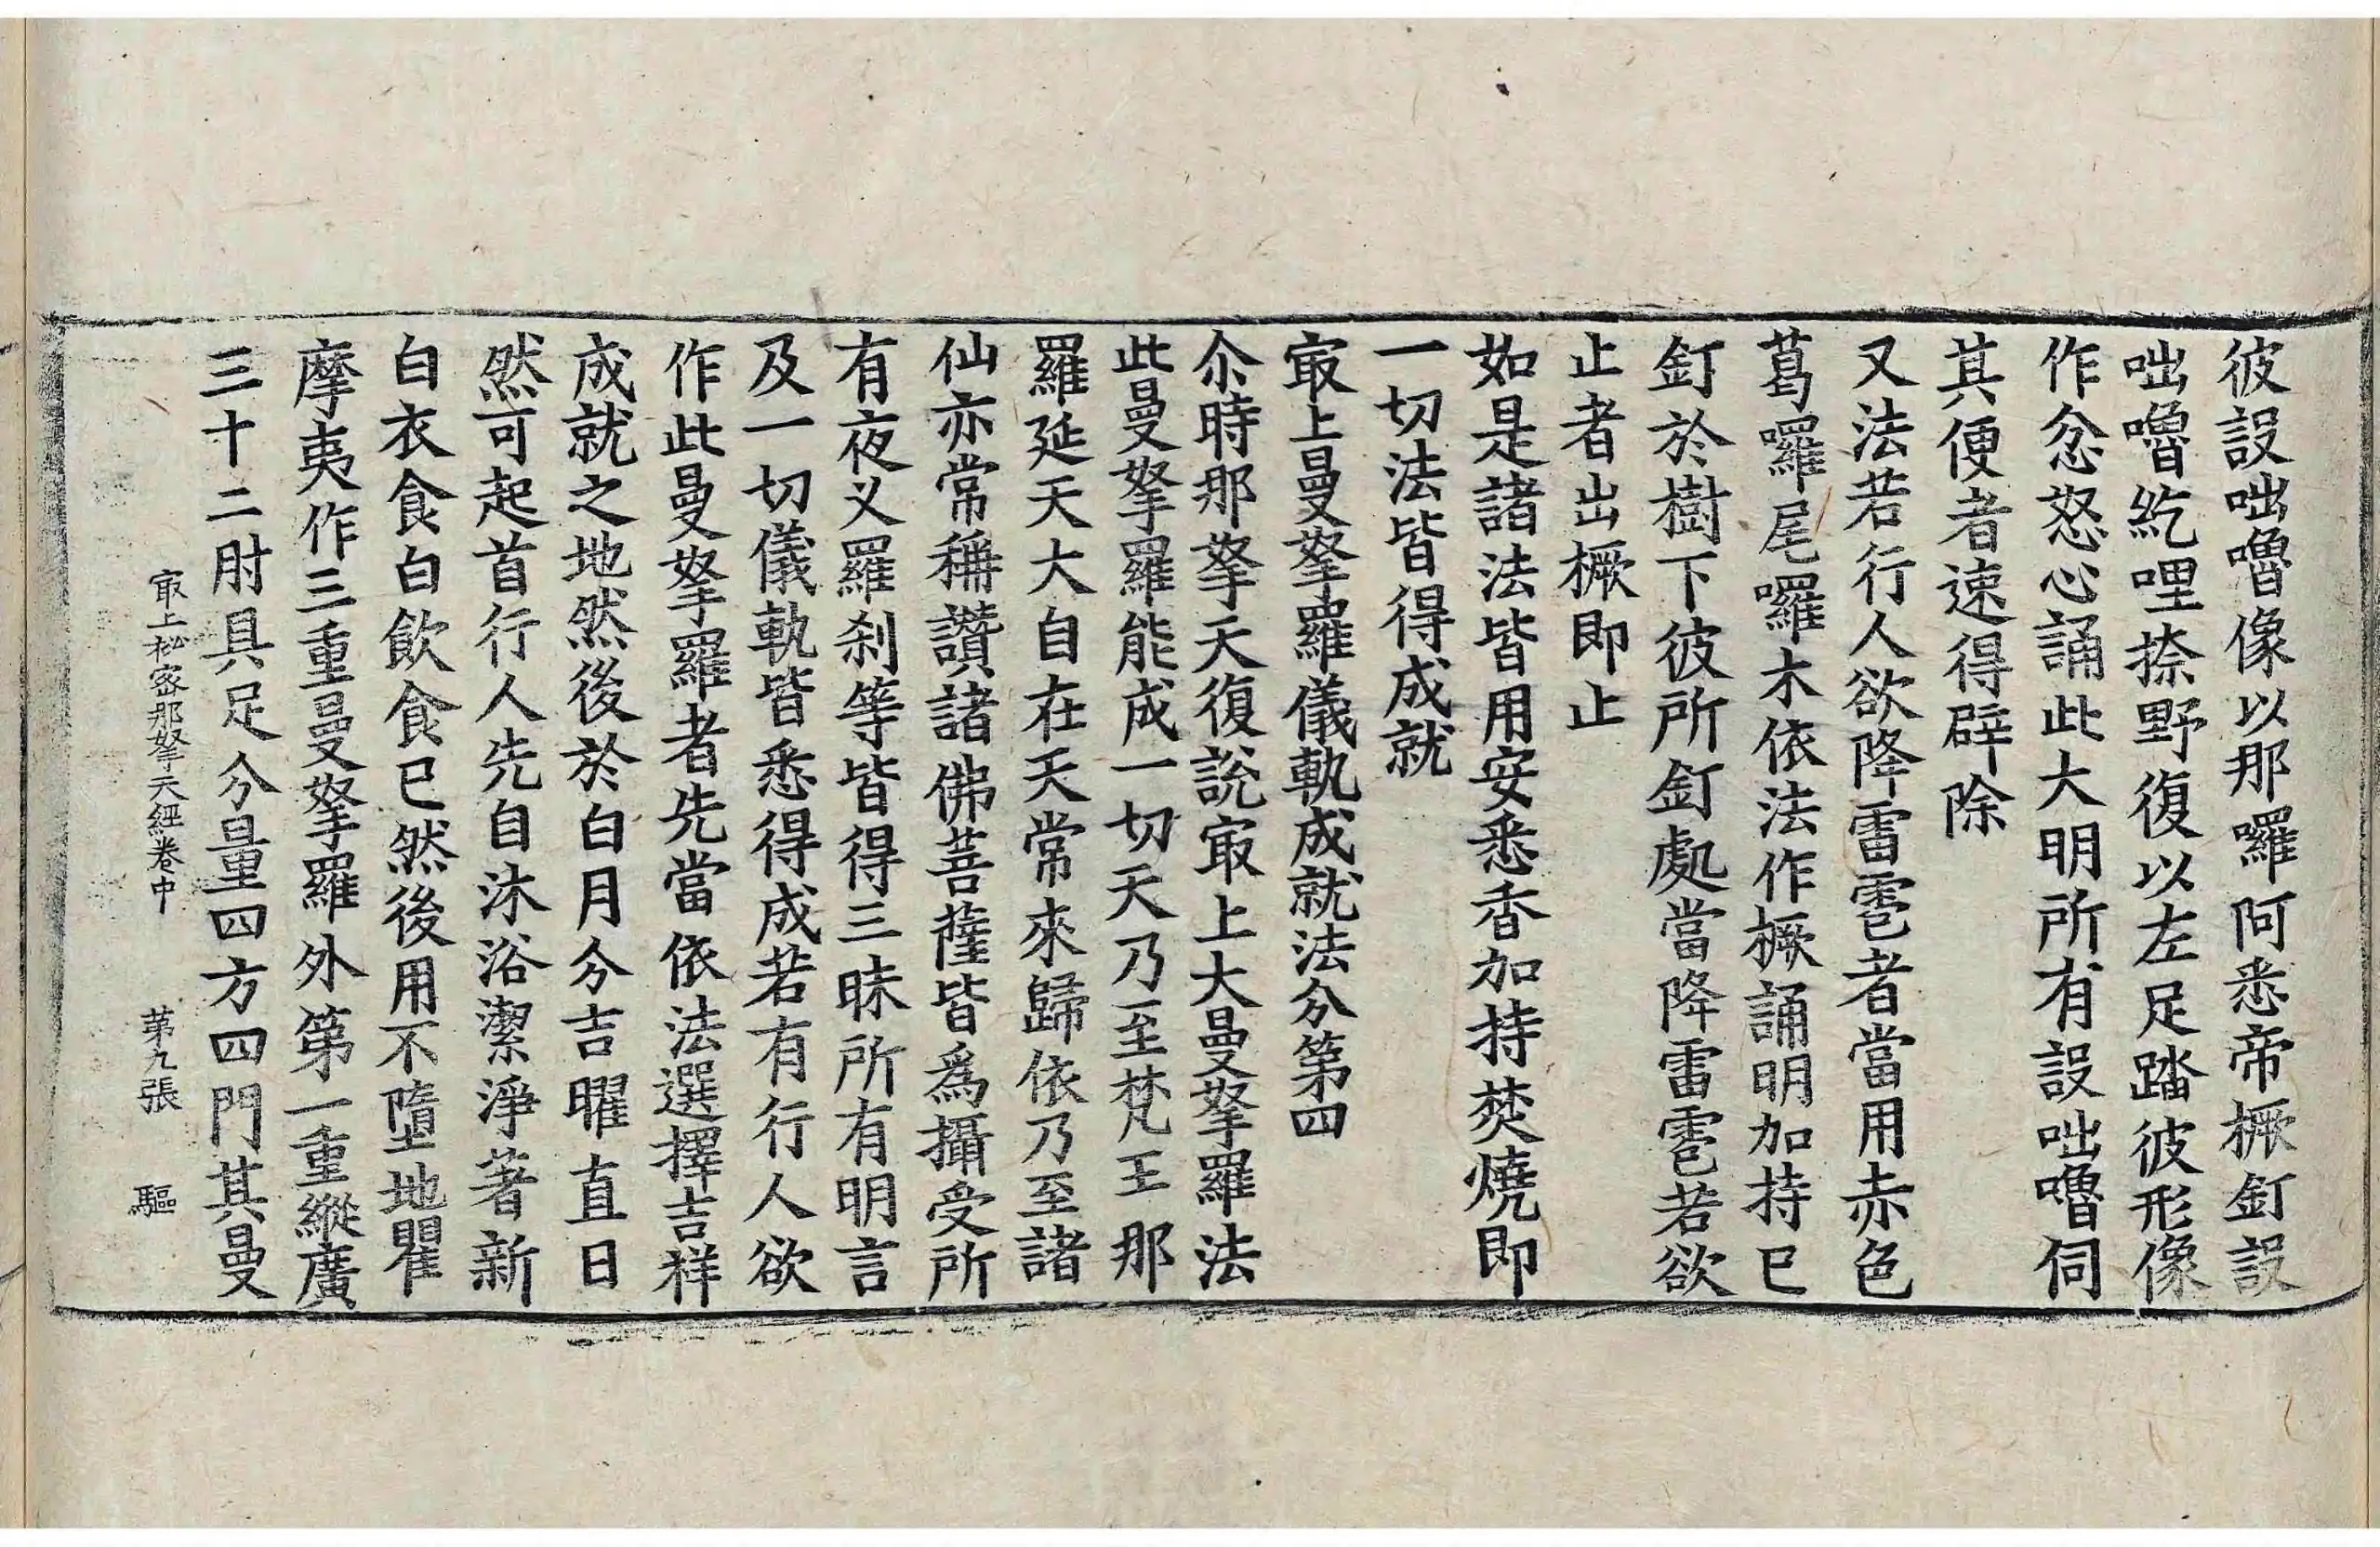 彼設咄嚕像以那囉阿悉帝橛釘設
咄嚕紇哩捺野復以左足踏彼形像
作忿怒心誦此大明所有設咄嚕伺
其便者速得辟除
又法若行人欲降雷雹者當用赤色
葛囉尾囉木依法作橛誦明加持已
釘於樹下彼所釘處當降雷雹若欲
止者出橛即止
如是諸法皆用安悉香加持焚燒即
一切法皆得成就
㝡上曼拏羅儀軌成就法分第四
尒時那拏天復說㝡上大曼拏羅法
此曼拏羅能成一切天乃至梵王那
羅延天大自在天常來歸依乃至諸
仙亦常稱讚諸佛菩薩皆爲攝受所
有夜叉羅刹等皆得三昧所有明言
及一切儀軌皆悉得成若有行人欲
作此曼拏羅者先當依法選擇吉祥
成就之地然後於白月分吉曜直日
然可起首行人先自沐浴潔淨著新
白衣食白飲食已然後用不墮地瞿
摩夷作三重曼拏羅外第一重縱廣
三十二肘具足分量四方四門其曼
㝡上秘密那拏天經卷中 第九張 驅